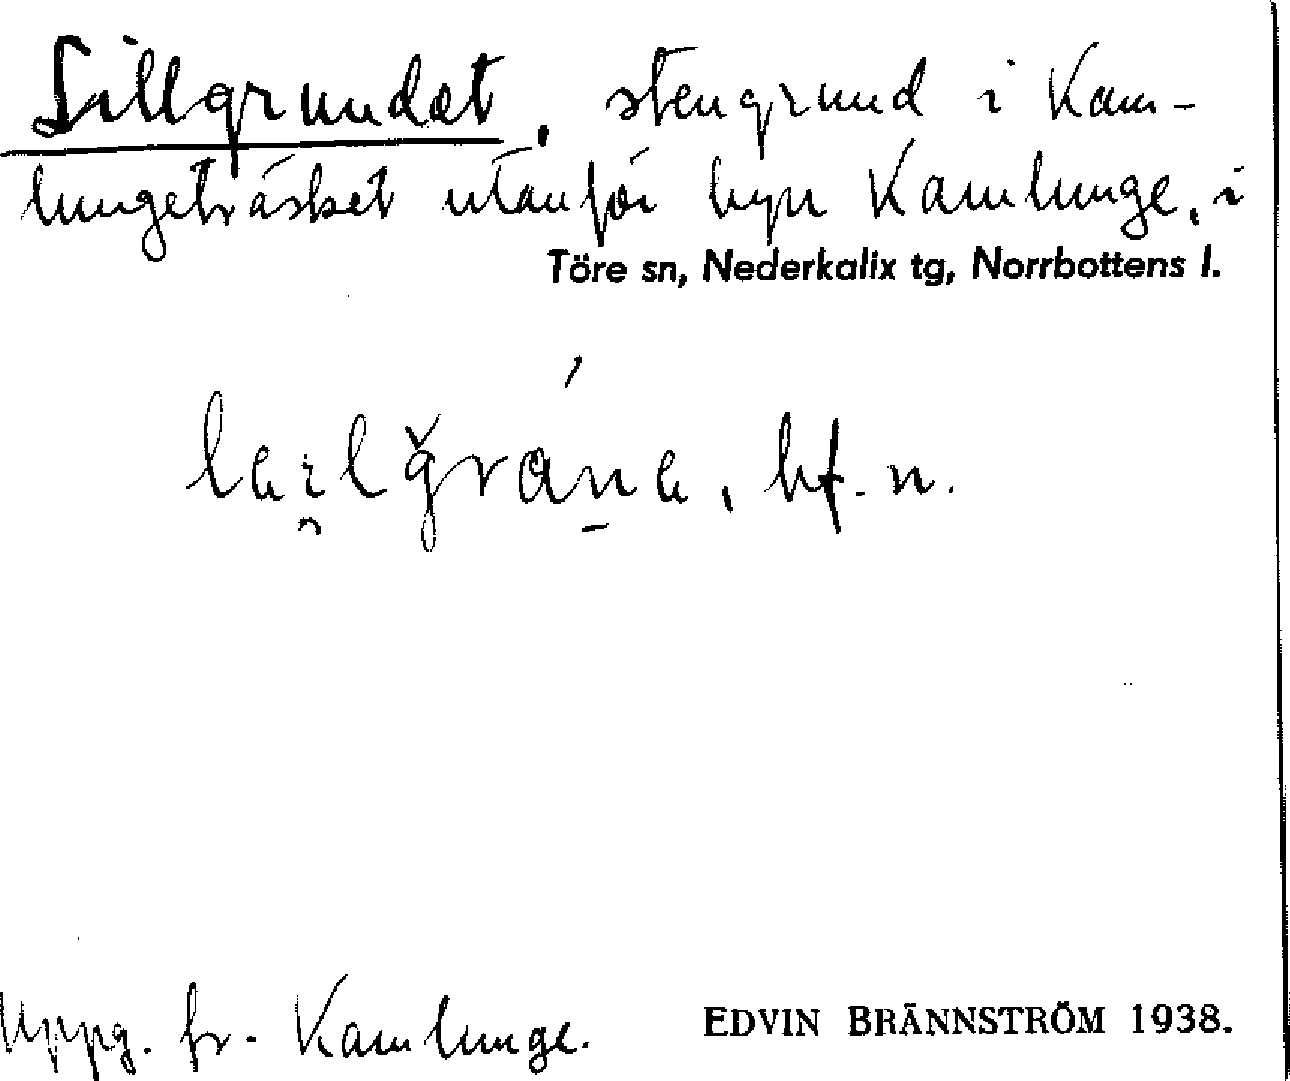 Lillgrundet, stengrund i Kam-
lungeträsket utanför byn Kamlunge, i
Töre sn, Nederkalix tg, Norrbottens l.
bf. n.
Uppg. fr. Kamlunge.
EDVIN BRÄNNSTRÖM 1938.